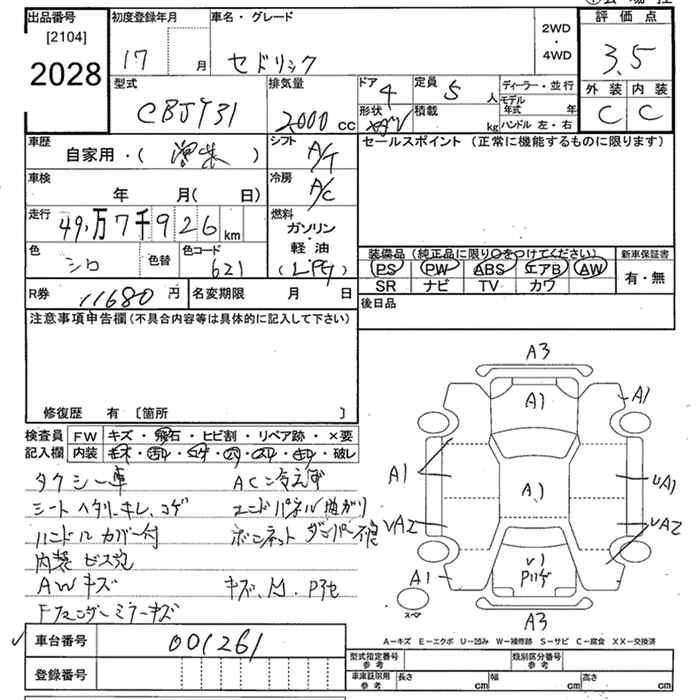 出品番号
[2104]
2028
初度登録年月
17 月
車名・グレード
セドリック
2WD
・
4WD
評価点
3.5
外装 内装
C C
型式
CBJY31
排気量
2000 cc
ドア 4
定員 5 人
形状 セダン
積載 kg
ディーラー・並行
モデル年式 年
ハンドル 左・右
車歴
自家用・( )
シフト
A/T
セールスポイント (正常に機能するものに限ります)
車検
年 月( 日)
冷房
A/C
走行
49万7千926km
燃料
ガソリン
軽・油
(LPG)
色
シロ
色替
色コード
621
装備品(純正品に限り○をつけてください)
PS PW ABS エアB AW
SR ナビ TV カワ
新車保証書
有・無
R券 11680 円
名変期限 月 日
後日品
注意事項申告欄(不具合内容等は具体的に記入して下さい)
修復歴 有 〔箇所 〕
検査員記入欄
FW キズ・飛石・ヒビ割・リペア跡・×要
内装 ・破レ
タクシー車 AC冷えず
シートヘタリ、キレ、コゲ エンドパネル曲がり
ハンドルカバー付 ボンネットダンパー不良
内装ビス穴
AWキズ
Fフェンダーミラーキズ
A3
A1
A1
A1
A1
UA1
UA2
UA2
U1
Pハゲ
A1
A3
スペア
A−キズ E−エクボ U−凹み W−補修跡 S−サビ C−腐食 XX−交換済
車台番号 001261
登録番号
型式指定番号 参考
類別区分番号 参考
車庫証明用 参考
長さ cm
幅 cm
高さ cm